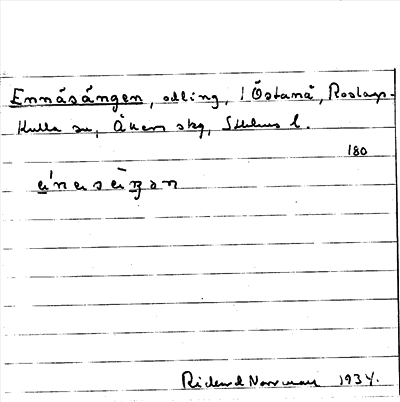 Ennåsängen, odling, 1 Östanå, Roslags-
Kulla sn, Åkers skg, Sthlms l.
180
Rickard Norrman 1934.